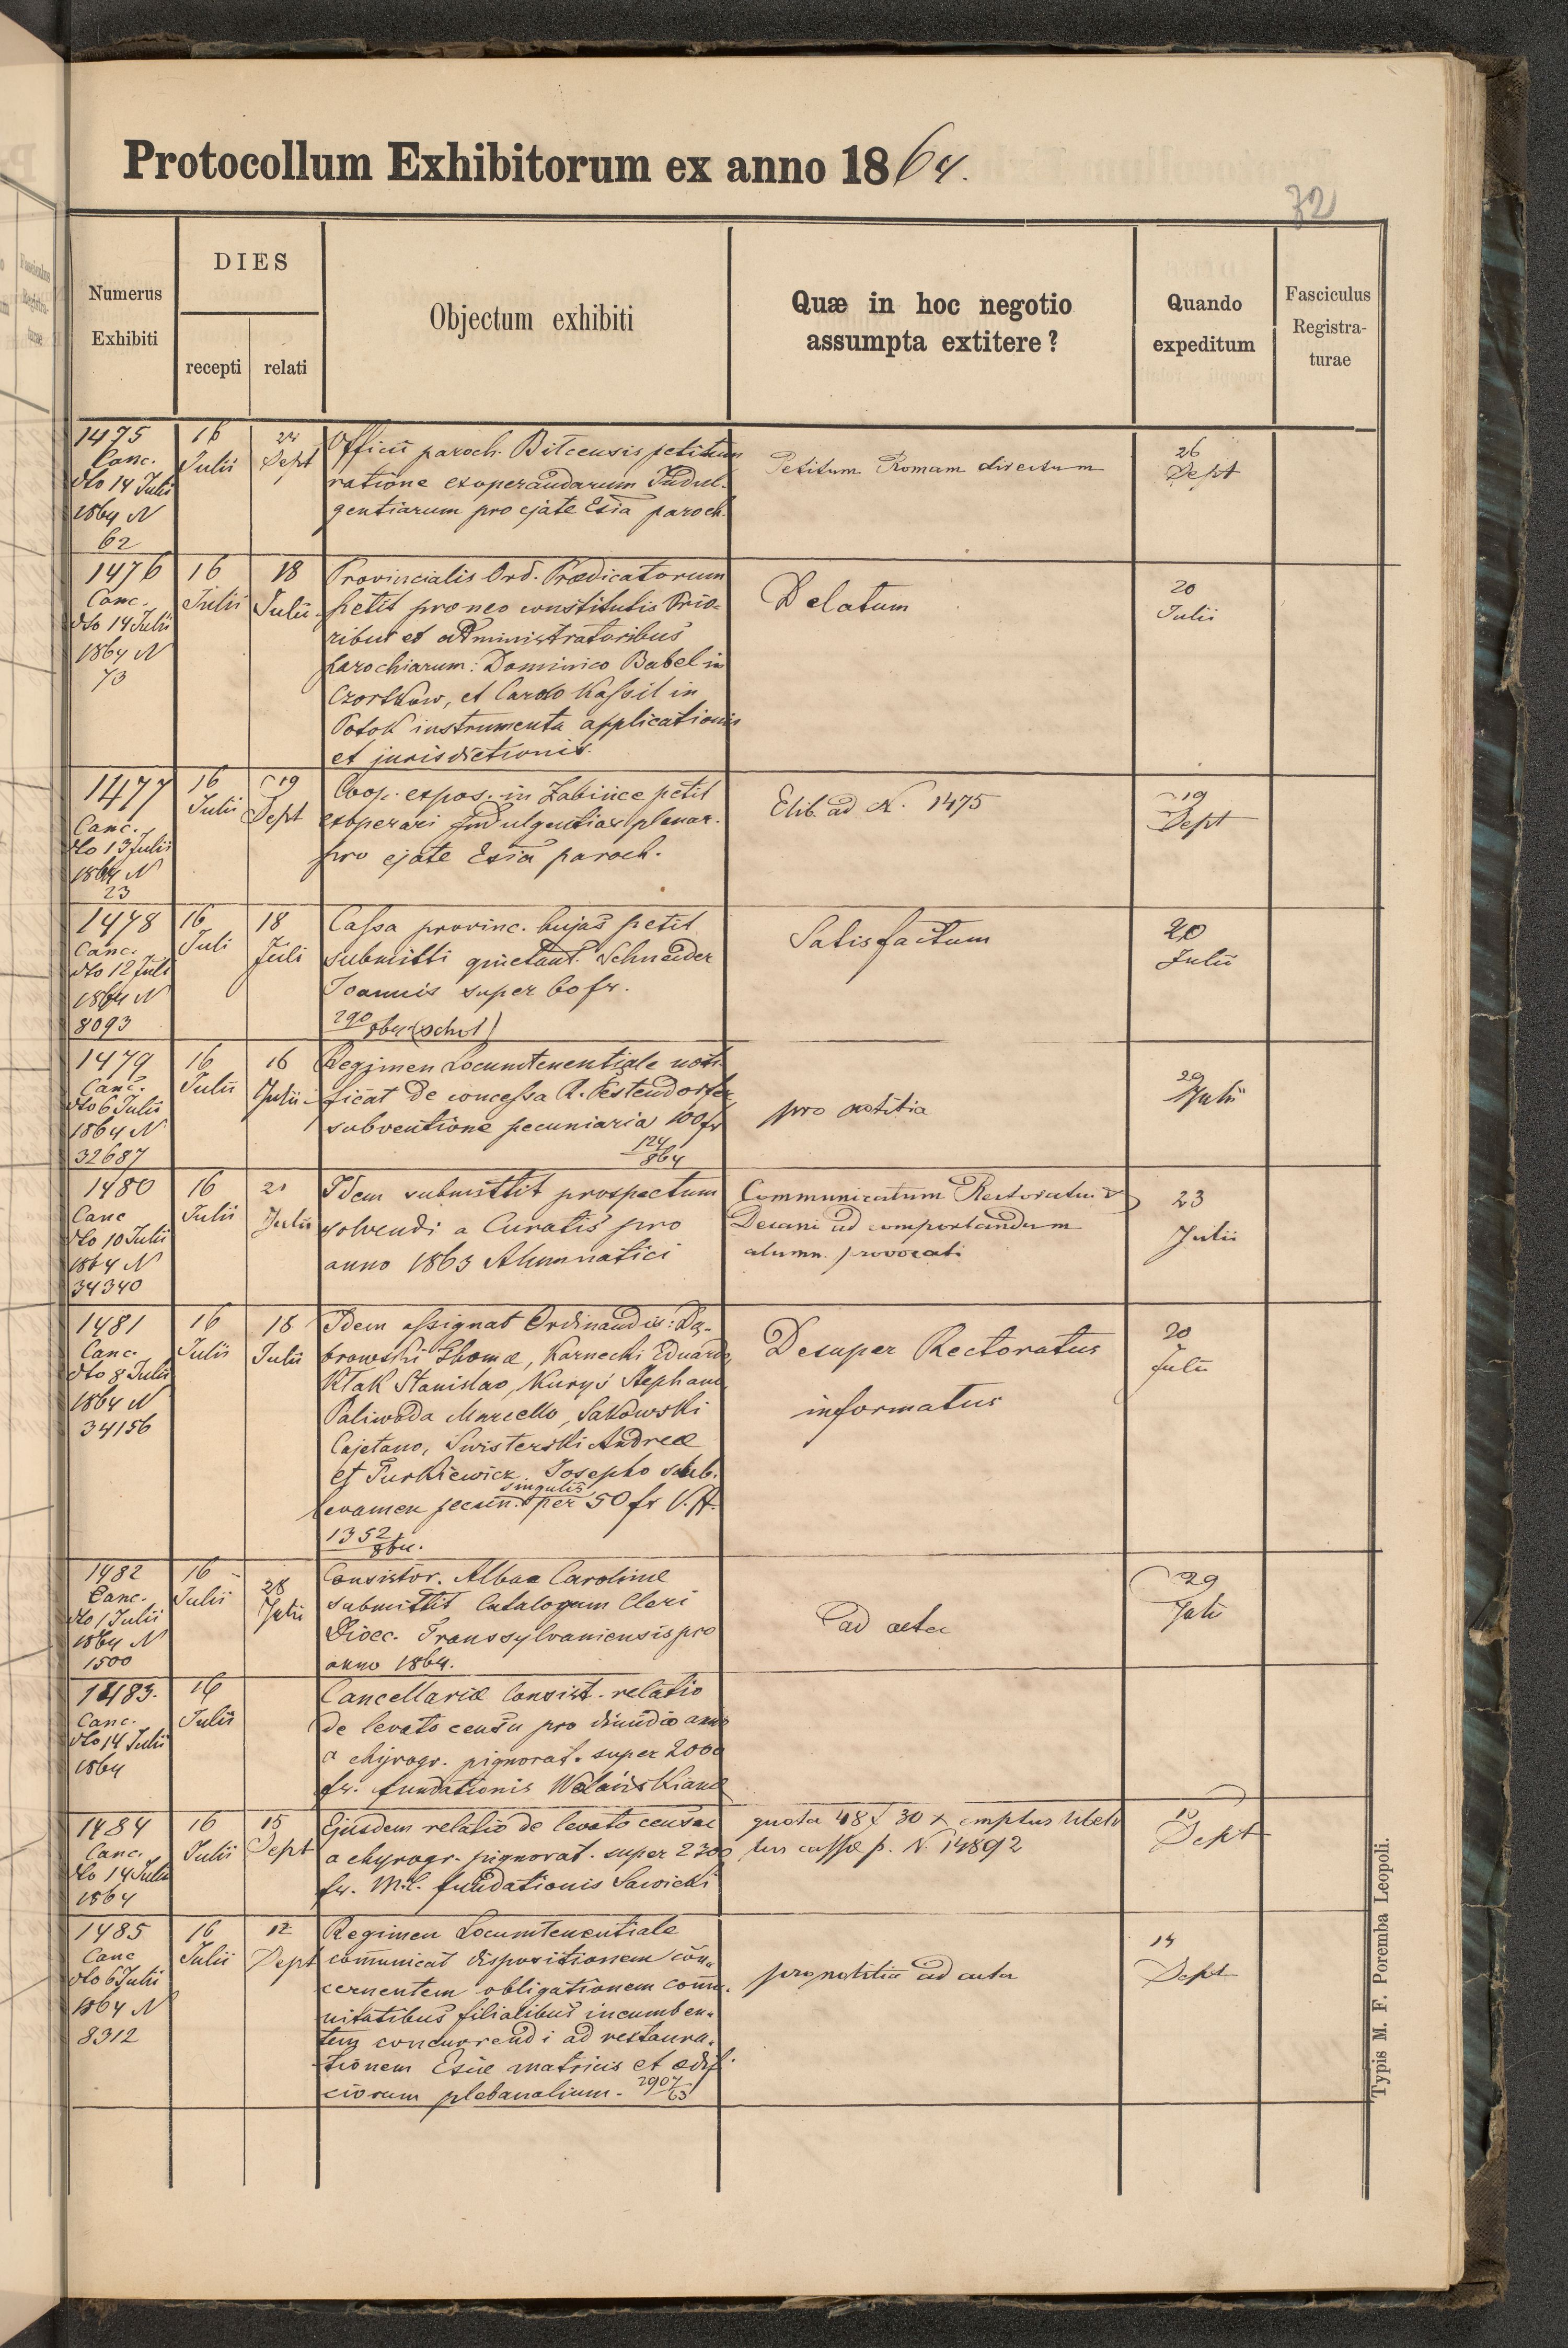 Protocollum Exhibitorum ex anno 1864.
72
Numerus
Exhibiti
DIES
recepti
relati
Objectum exhibiti
Quæ in hoc negotio
assumpta extitere?
Quando
expeditum
Fasciculus
Registra-
turae
1475
Canc.
dto 14 Julii
1864 N
62
16
Julii
24
Sept
Officii paroch. Bilcensis petitum
ratione exoperandarum Indul-
gentiarum pro ejate Esia paroch.
Petitum Romam directum
26
Sept
1476
Canc.
dto 14 Julii
1864 N
73
16
Julii
18
Julii
Provincialis Ord. Prædicatorum
petit pro neo constitutis Prio-
ribus et administratoribus
parochiarum: Dominico Babel in
Czortkow, et Carolo Kassil in
Potok instrumenta applicationis
et jurisdictionis.
Delatum
20
Julii
1477
Canc.
dto 13 Julii
1864 N
23
16
Julii
19
Sept
Coop. expos. in Zabince petit
exoperari Indulgentias plenar.
pro ejate Esia paroch.
Exib. ad N. 1475
19
Sept
1478
Canc.
dto 12 Juli
1864 N
8093
16
Juli
18
Juli
Cassa provinc. hujas petit
submitti quietant. Schneider
Joannis super 60 fr.
290/864 (schol)
Satisfactum
20
Julii
1479
Canc.
dto 6 Julii
1864 N
32687
16
Julii
16
Julii
Regimen Locumtenentiale noti-
ficat de concessa A. Festendorfer
subventione pecuniaria 100 fr
124/864
pro notitia
29
Julii
1480
Canc
dto 10 Julii
1864 N
34340
16
Julii
21
Julii
Idem submittit prospectum
solvendi a Curatis pro
anno 1863 Alumnatici
Communicatum Rectoratui &
Decani ad comportandum
alumn. provocati
23
Julii
1481
Canc.
dto 8 Julii
1864 N
34156
16
Julii
18
Julii
Idem assignat Ordinandis: Dą-
browski Thomæ, Karnecki Eduardo,
Ktak Stanislao, Kuryś Stephano,
Paliwoda Marcello, Sakowski
Cajetano, Swisterski Andreæ
et Turkiewicz Josepho sub-
levamen pecun. singulis per 50 fr V. A.
1352/864.
Desuper Rectoratus
informatus
20
Julii
1482
Canc.
dto 1 Julii
1864 N
1500
16
Julii
28
Julii
Consistor. Albae Carolinæ
submittit Catalogum Cleri
Dioec. Transsylvaniensis pro
anno 1864.
ad acta
29
Juli
1483.
Canc.
dto 14 Julii
1864
16
Julii
Cancellariæ Consist. relatio
de levato censu pro dimidio anno
a chyrogr. pignorat. super 2000
fr. fundationis Wolańskianæ
1484
Canc.
dto 14 Julii
1864
16
Julii
15
Sept
Ejusdem relatio de levato censu
a chyrogr. pignorat. super 2300
fr. M.C. fundationis Sawicki
quota 48 f 30 x emptus libel-
lus cassæ p. N. 14892
15
Sept
1485
Canc
dto 6 Julii
1864 N
8312
16
Julii
12
Sept
Regimen Locumtenentiale
communicat dispositionem con-
cernentem obligationem commu-
nitatibus filialibus incumben-
tem concurrendi ad restaura-
tionem Esiæ matricis et ædifi-
ciorum plebanalium. 2907/63
pro notitia ad acta
14
Sept
Typis M. F. Poremba Leopoli.